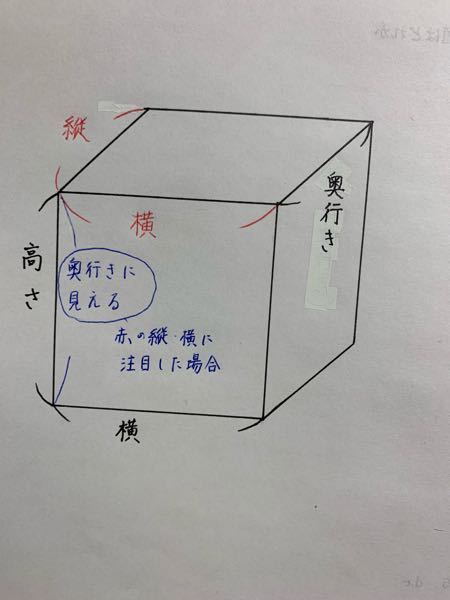 縦
横
奥行き
高さ
奥行きに
見える
赤の縦・横に
注目した場合
横